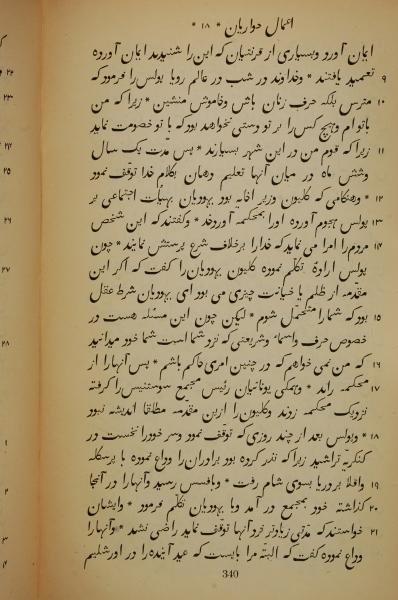 اعمال حواریان * ۱۸ *
ایمان آورد و بسیاری از قرنتیان که این را شنیدند ایمان آورده
۹ تعمید یافتند * وخداوند در شب در عالم رویا پولس را فرمود که
۱۰ مترس بلکه حرف زنان باش وخاموش منشین * زیرا که من
باتو ام وهیچ کس را بر تو دستی نخواهد بود که با تو خصومت نماید
۱۱ زیرا که قوم من در این شهر بسیارند * پس مدت یک سال
وشش ماه در میان آنها تعلیم دهان بکلام خدا توقف نمود
۱۲ * وهنگامی که کلیون وزیر اخایه بود یهودیان بهیئات اجتماعی بر
۱۳ پولس هجوم آورده اورا بمحکمه آوردند * وگفتند که این شخص
۱۴ مردم را امرا می نماید که خدا را برخلاف شرع پرستش نمایند * چون
پولس ارادهٔ تکلم نموده کلیون یهودیان را گفت که اگر این
مقدمه از ظلم یا خیانت چیزی می بود ای یهودیان شرط عقل
۱۵ بود که شما را متحمل شوم * لیکن چون این مسئله هست در
خصوص حرف واسماء وشریعتی که نزد شما است شما خود میدانید
۱۶ که من نمی خواهم که در چنین امری حاکم باشم * پس آنها را از
۱۷ محکمه راند * وهمگی یونانیان رئیس مجمع سوستنیس را گرفته
نزدیک محکمه زدند وکلیون را ازین مقدمه مطلقا اندیشه نبود
۱۸ * وپولس بعد از چند روزی که توقف نمود وسر خود را نخست در
کنکریه تراشید زیرا که نذر کرده بود برادران را وداع نموده با پرسکله
۱۹ واقلا بر دریا بسوی شام رفت * وبافسس رسید وآنها را در آنجا
۲۰ گذاشته خود بمجمع در آمد وبا یهودیان تکلم فرمود * وایشان
۲۱ خواستند که مدتی زیادتر نزد آنها توقف نماید راضی نشد * وآنها را
وداع نموده گفت که البته مرا بایست که عید آینده را در اورشلیم
340